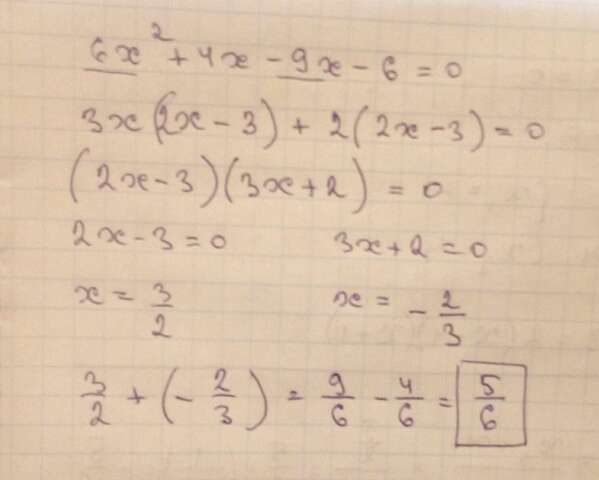 6x² + 4x - 9x - 6 = 0
3x(2x - 3) + 2(2x - 3) = 0
(2x - 3)(3x + 2) = 0
2x - 3 = 0    3x + 2 = 0
x = 3/2    x = - 2/3
3/2 + (- 2/3) = 9/6 - 4/6 = 5/6